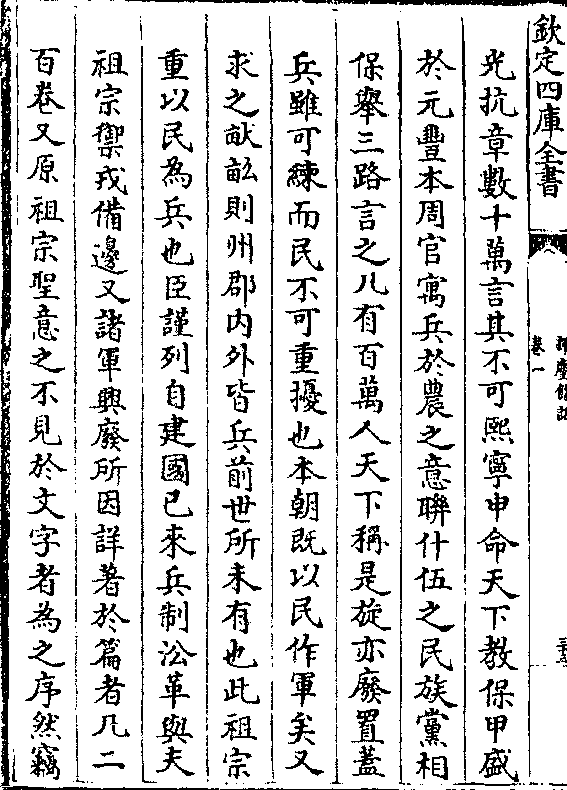 欽定四庫全書
卷一
光抗章數十萬言其不可熙寧申命天下教保甲盛
於元豐本周官寓兵於農之意聯什伍之民族黨相
保舉三路言之凡有百萬人天下稱是旋亦廢置蓋
兵雖可練而民不可重擾也本朝既以民作軍矣又
求之畎畝則州郡内外皆兵前世所未有也此祖宗
重以民為兵也臣謹列自建國已來兵制沿革與夫
祖宗禦戎備邊又諸軍興廢所因詳著於篇者凡二
百卷又原祖宗聖意之不見於文字者為之序然竊